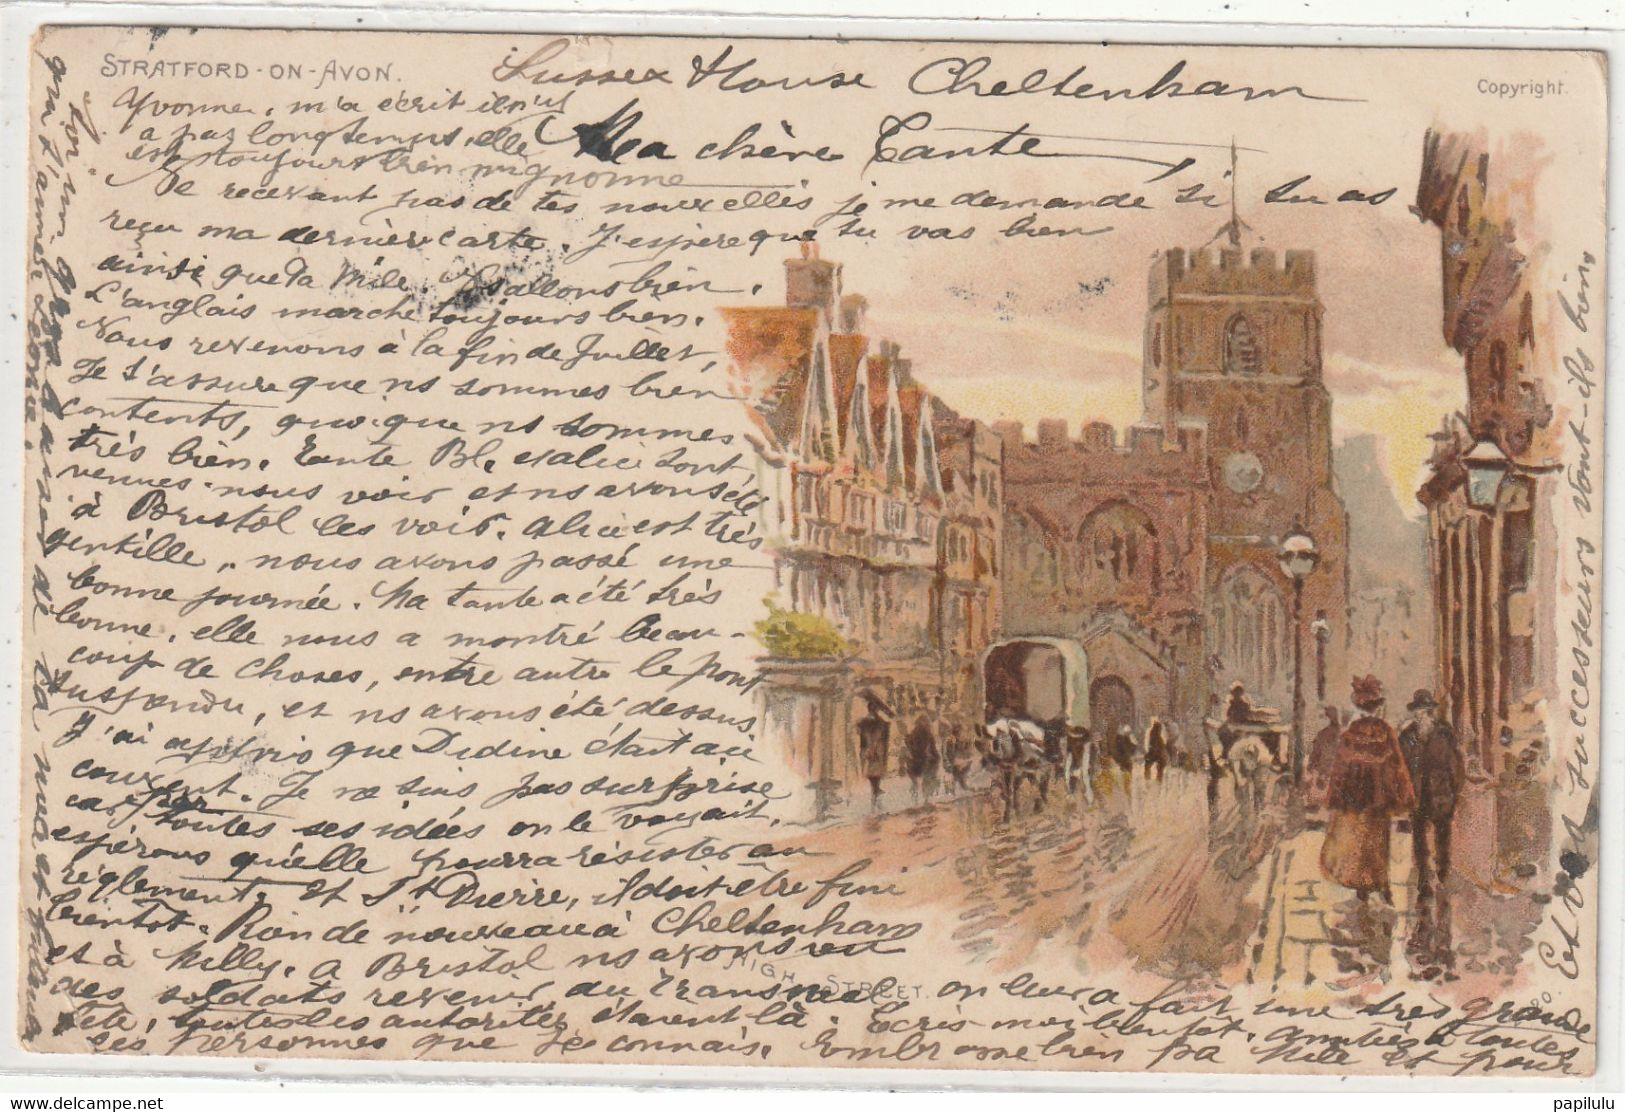 STRATFORD-ON-AVON.
Copyright.
Sussex House Cheltenham
Yvonne, m'a écrit il n'y
a pas longtemps, elle
est toujours bien mignonne
Ma chère Tante,
Ne recevant pas de tes nouvelles je me demande si tu as
reçu ma dernière carte. J'espère que tu vas bien
ainsi que ta Mile. Ns allons bien.
L'anglais marche toujours bien.
Nous revenons à la fin de Juillet,
Je t'assure que ns sommes bien
contents, quoique ns sommes
très bien. Tante Bl. et alice sont
venues nous voir et ns avons été
à Bristol les voir. Alice est très
gentille, nous avons passé une
bonne journée. Ma tante a été très
bonne, elle nous a montré beau-
coup de choses, entre autre le pont
suspendu, et ns avons été dessus
J'ai appris que Didine était au
couvent. Je ne suis pas surprise
car par toutes ses idées on le voyait,
espérons qu'elle pourra résister au
règlement. Et St Pierre, il doit être fini
bientot. Rien de nouveau à Cheltenham
et à Milly. A Bristol ns avons vu
des soldats revenir du Transvaal on leur a fait une très grande
fête, toutes les autorités étaient là. Ecris-moi bientot. amitiés à toutes
les personnes que je connais. Embrasse bien pa Mile et pour
toi un gros baiser de ta
qui t'aime
Et vos successeurs vont-ils bien,
HIGH STREET.
papilulu